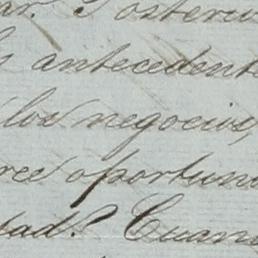 ar. Posterio
s antecedent
los negocios,
ree oportuno
tad? Cuan